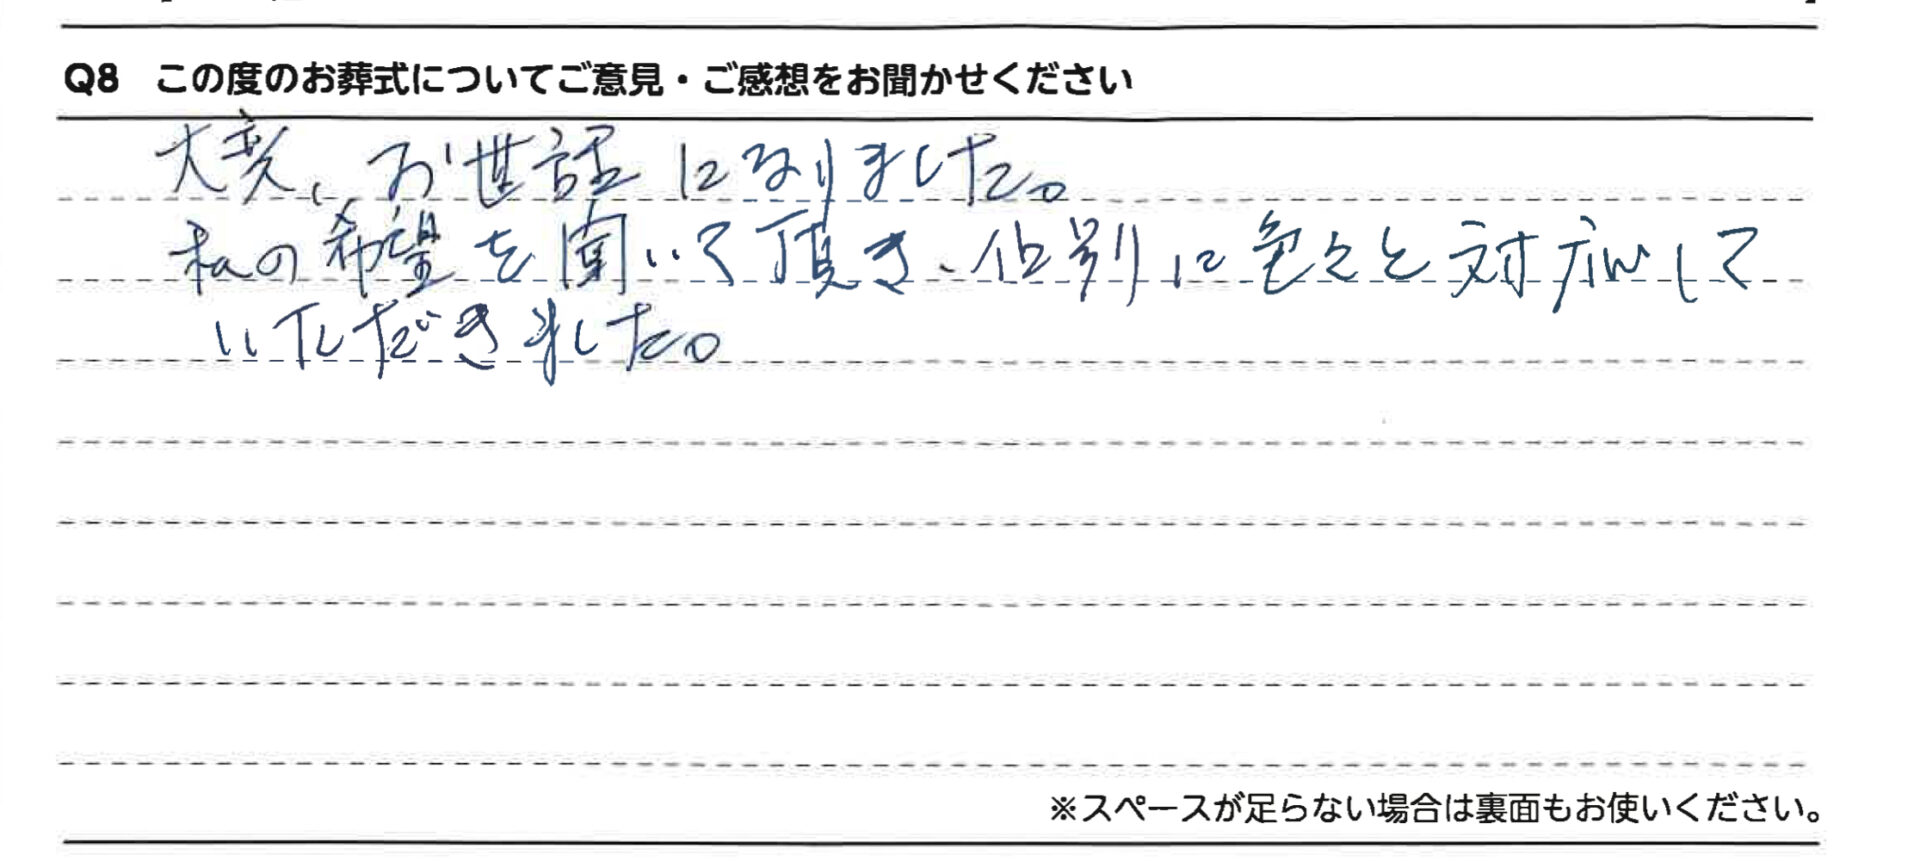 Q8 この度のお葬式についてご意見・ご感想をお聞かせください
大変、お世話になりました。
私の希望を聞いて頂き、個別に色々と対応して
いただきました。
※スペースが足らない場合は裏面もお使いください。